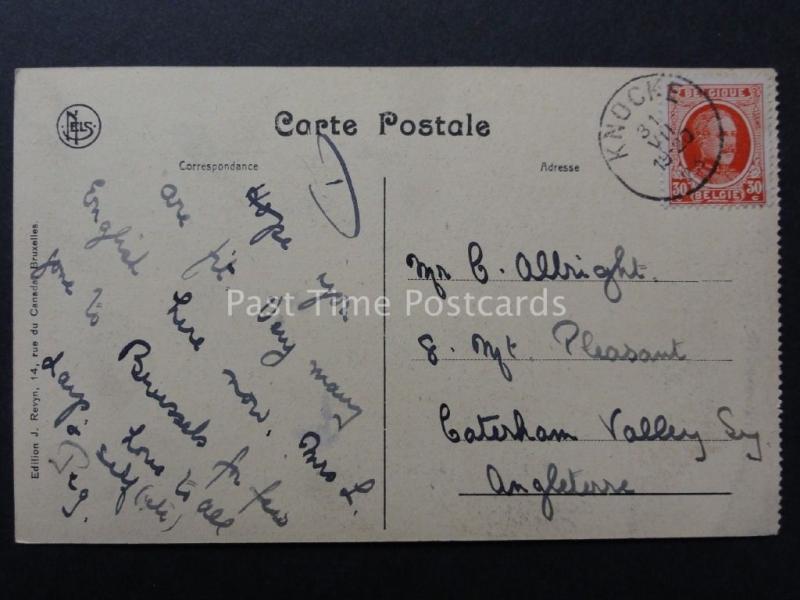 NELS
Carte Postale
Correspondance
Adresse
KNOCKE
31
VII
BELGIQUE
30 30
c c
(BELGIË)
Hope you
are fit. Very many
English here now. Mrs L.
gone to Brussels for few
days. Love to all
& self (etc)
Peg.
Mr C. Albright.
8. Mt. Pleasant
Caterham Valley Sy
Angleterre
Edition J. Revyn, 14, rue du Canada, Bruxelles.
Past Time Postcards